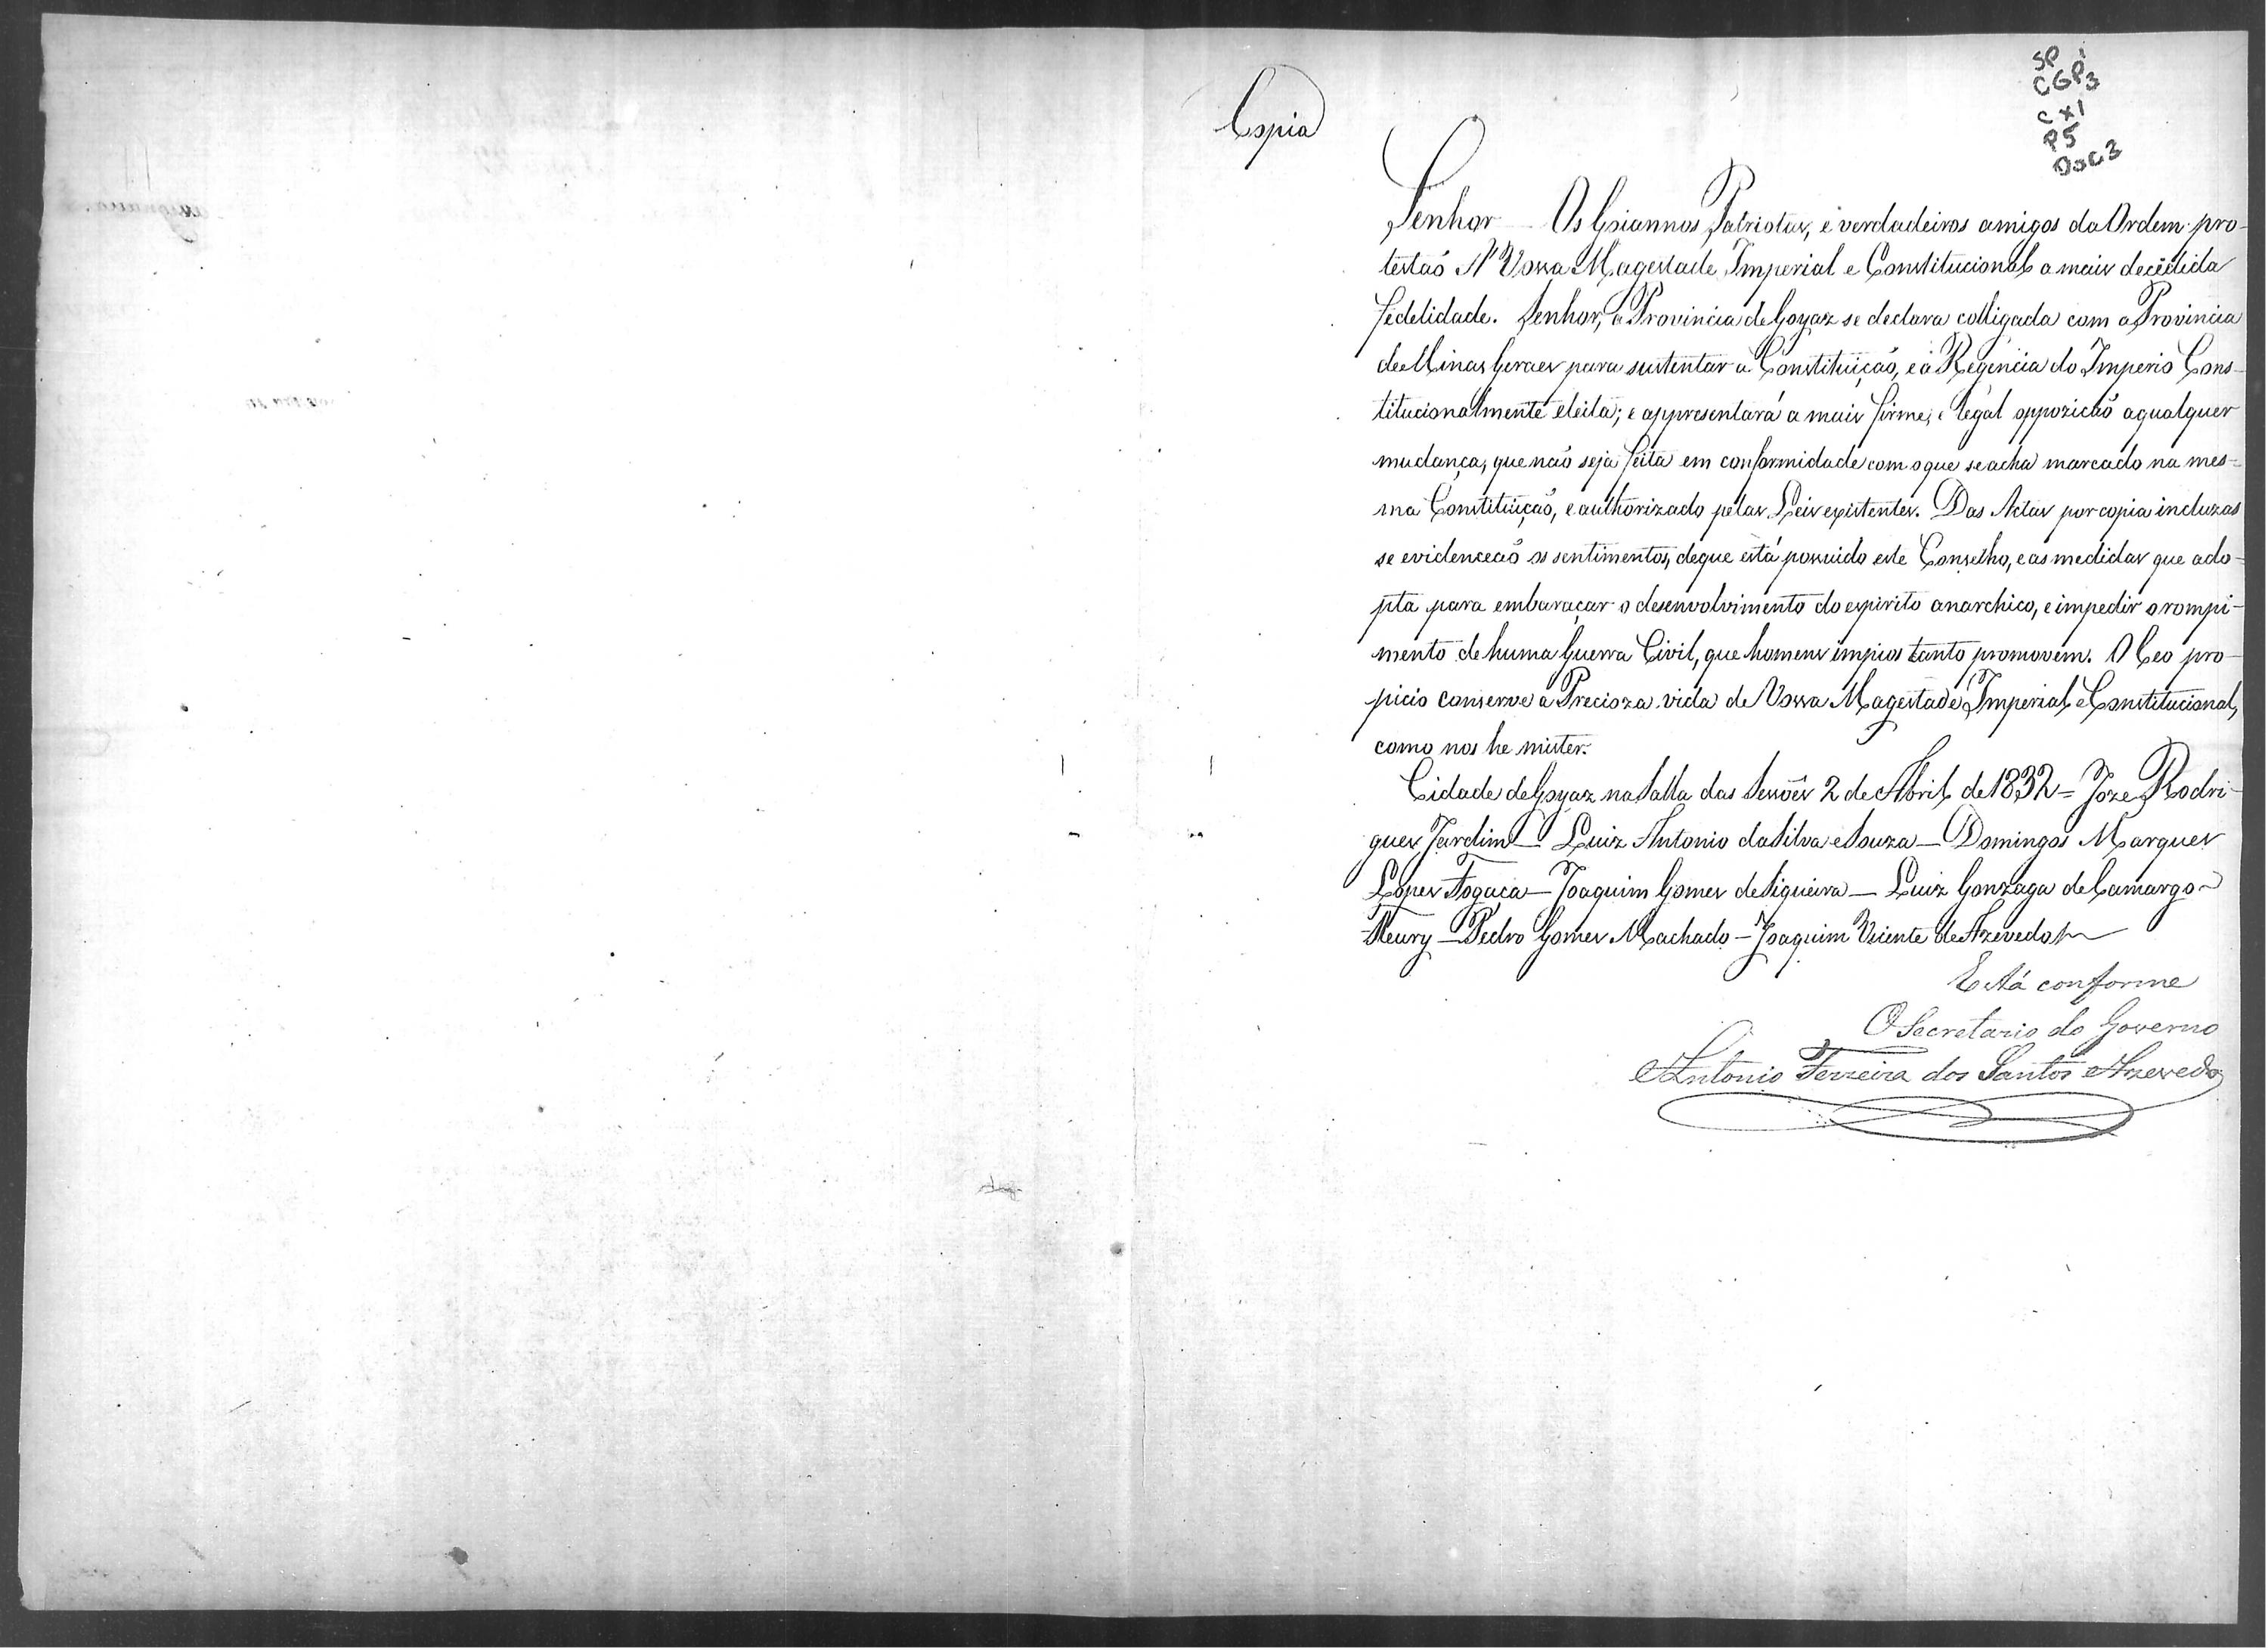 Copia
SP
CGP3
CX1
P5
Doc3
Senhor — Os Goiannos Patriotas, e verdadeiros amigos da Ordem pro-
testaõ A' Vossa Magestade Imperial e Constitucional a mais decidida
fidelidade. Senhor, a Provincia de Goyaz se declara colligada com a Provincia
de Minas Geraes para sustentar a Constituiçaõ, e á Regencia do Imperio Cons-
titucionalmente eleita; e appresentará a mais firme, e legal oppoziçaõ a qualquer
mudança, que naõ seja feita em conformidade com o que se acha marcado na mes=
ma Constituiçaõ, e authorizado pelas Leis existentes. Das Actas por copia incluzas
se evidenceaõ os sentimentos, de que está possuido este Conselho, e as medidas que ado-
pta para embaraçar o desenvolvimento do espirito anarchico, e impedir o rompi-
mento de huma Guerra Civil, que homens impios tanto promovem. O Ceo pro-
picio conserve a Precioza vida de Vossa Magestade Imperial e Constitucional,
como nos he mister.
Cidade de Goyaz na Salla das Sessoẽs 2 de Abril de 1832 = Joze Rodri-
gues Jardim — Luiz Antonio da Silva e Souza — Domingos Marques
Lopes Fogaça — Joaquim Gomes de Siqueira — Luiz Gonzaga de Camargo
Fleury — Pedro Gomes Machado — Joaquim Vicente de Azevedo
Está conforme
O Secretario do Governo
Antonio Ferreira dos Santos Azevedo